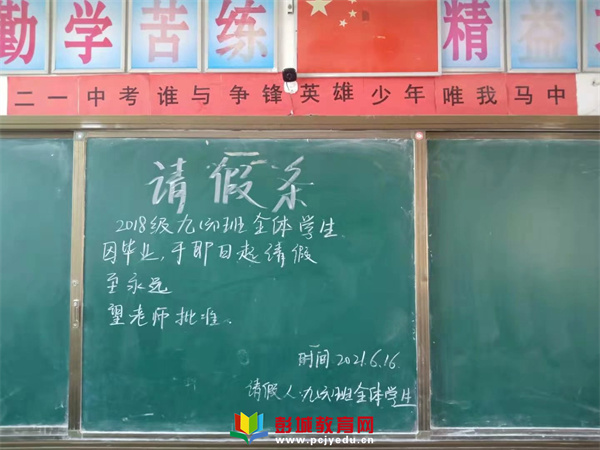 勤学苦练
精益
二一中考谁与争锋英雄少年唯我马中
请假条
2018级九(6)班全体学生
因毕业,于即日起请假
至永远
望老师批准。
时间 2021.6.16
请假人:九(6)班全体学生
彭城教育网
www.pcjyedu.cn